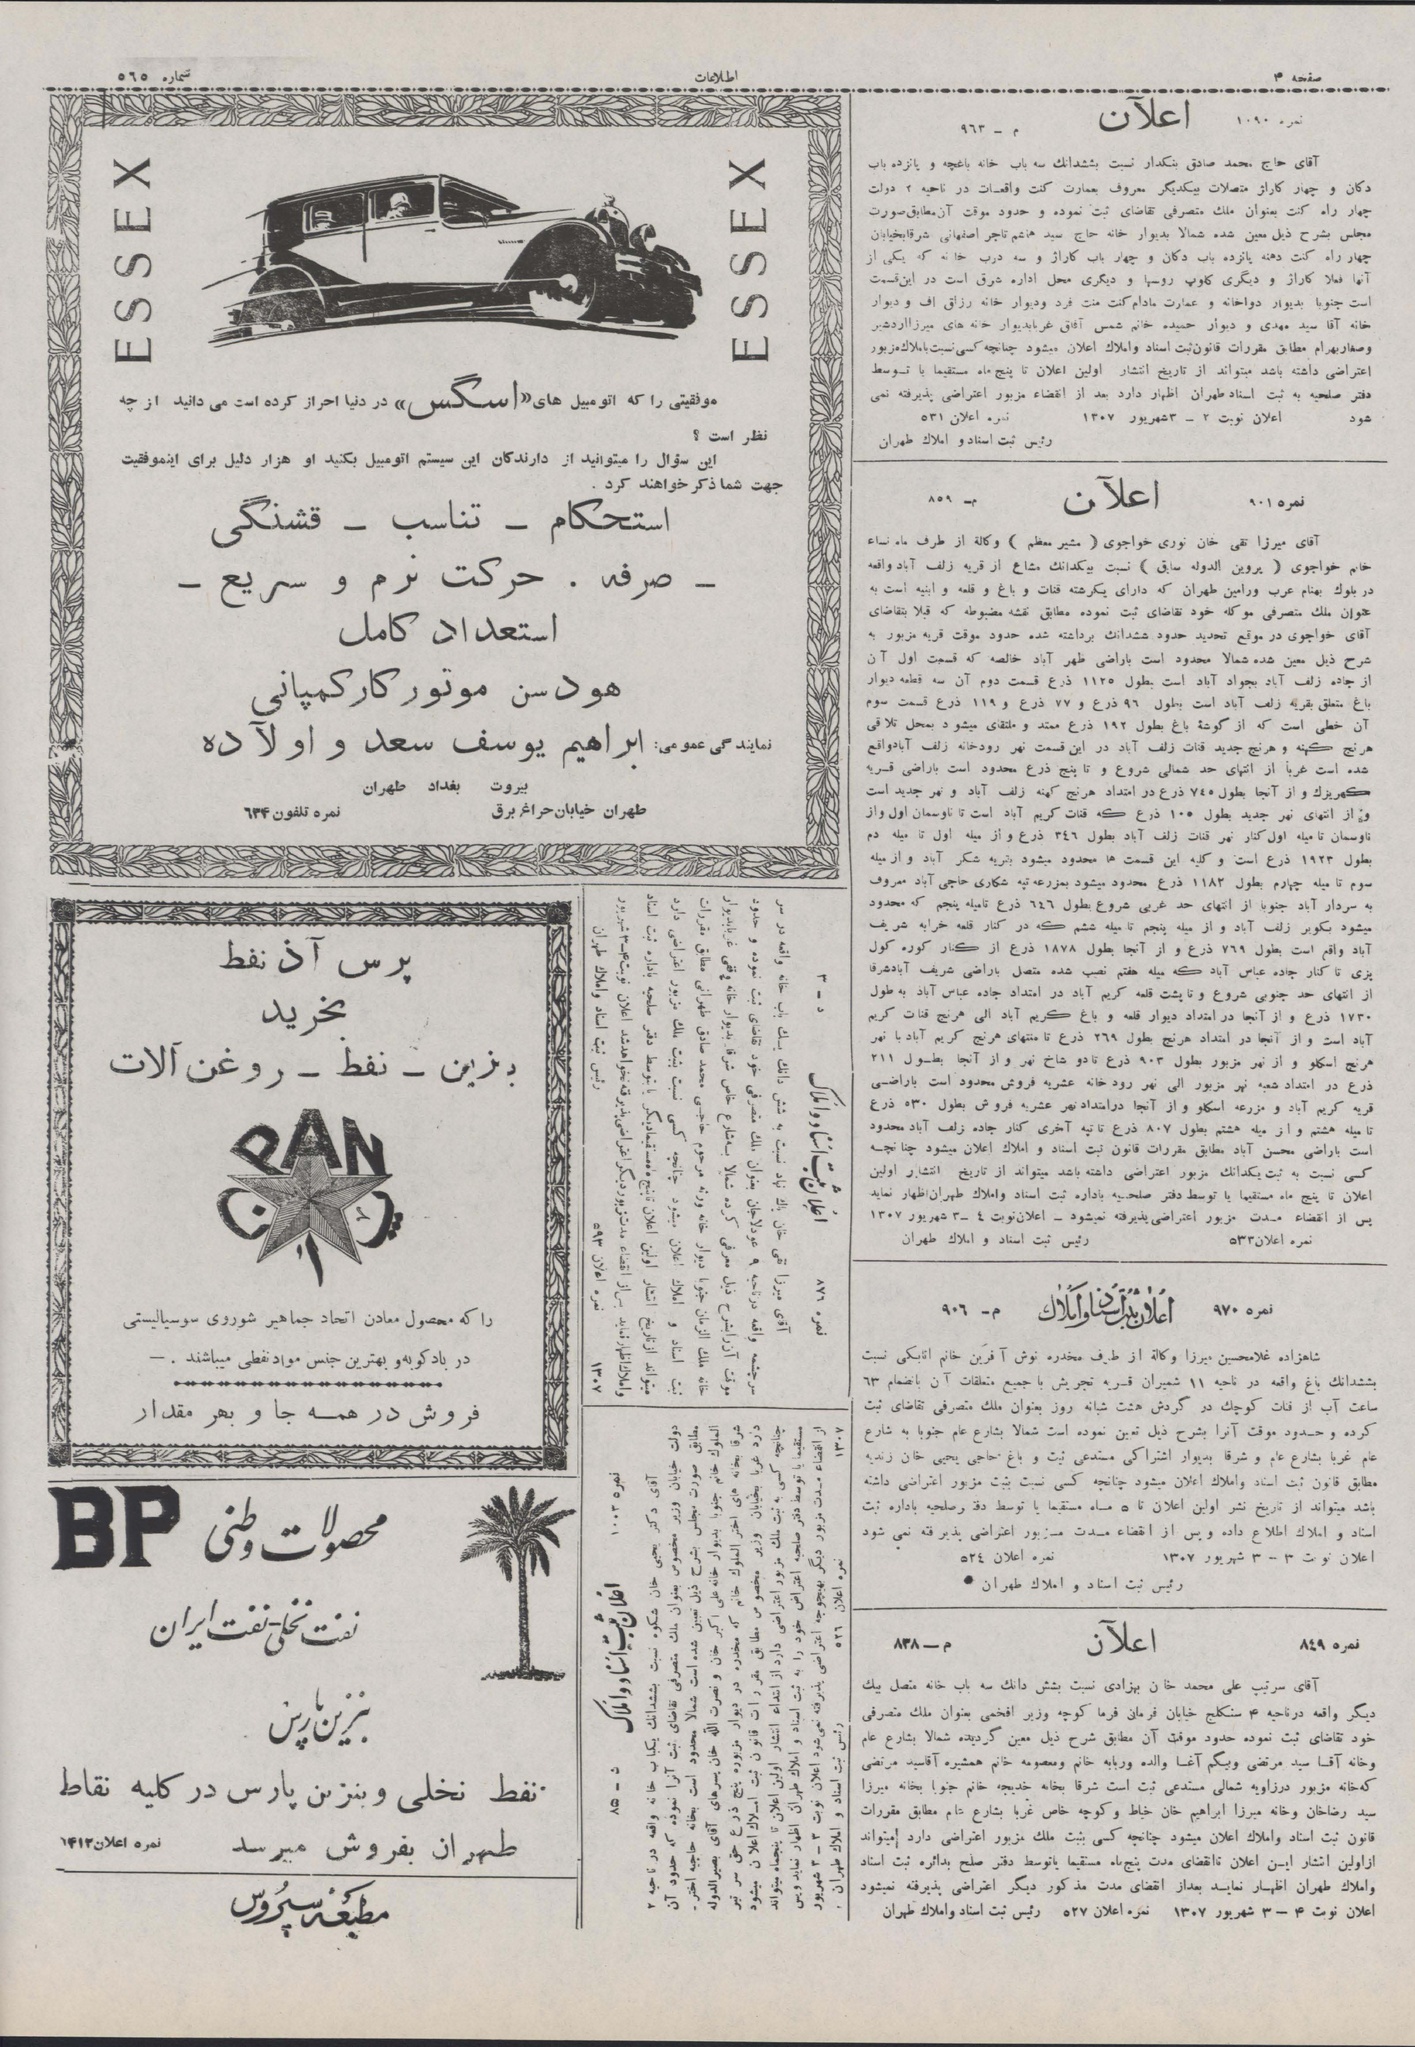 صفحه ۴
اطلاعات
شماره ۵۶۵
نمره ۱۰۹۰
اعلان
م – ۹۶۳
آقای حاج محمد صادق بنکدار نسبت بششدانك سه باب خانه باغچه و یانزده باب
دکان و چهار کاراژ متصلات بیکدیگر معروف بعمارت کنت واقعات در ناحیه ۲ دولت
چهار راه کنت بعنوان ملك متصرفی تقاضای ثبت نموده و حدود موقت آن مطابق صورت
مجلس بشرح ذیل معین شده شمالا بدیوار خانه حاج سید هاشم تاجر اصفهانی شرقا بخیابان
چهار راه کنت دهنه یانزده باب دکان و چهار باب کاراژ و سه درب خانه که یکی از
آنها فعلا کاراژ و دیگری کلوپ روسها و دیگری محل اداره شرق است در این قسمت
است جنوبا بدیوار دواخانه و عمارت مادام کنت منت فرد ودیوار خانه رزاق اف و دیوار
خانه آقا سید مهدی و دیوار حمیده خانم شمس آفاق غربا بدیوار خانه های میرزا اردشیر
وصغار بهرام مطابق مقررات قانون ثبت اسناد واملاك اعلان میشود چنانچه کسی نسبت باملاك مزبور
اعتراضی داشته باشد میتواند از تاریخ انتشار اولین اعلان تا پنج ماه مستقیما یا توسط
دفتر صلحیه به ثبت اسناد طهران اظهار دارد بعد از انقضاء مزبور اعتراضی پذیرفته نمی
شود اعلان نوبت ۲ – ۳ شهریور ۱۳۰۷ نمره اعلان ۵۳۱
رئیس ثبت اسناد و املاك طهران
نمره ۹۰۱
اعلان
م– ۸۵۹
آقای میرزا تقی خان نوری خواجوی ( مشیر معظم ) وکالة از طرف ماه نساء
خانم خواجوی ( پروین الدوله سابق ) نسبت بیکدانك مشاع از قریه زلف آباد واقعه
در بلوك بهنام عرب ورامین طهران که دارای یکرشته قنات و باغ و قلعه و ابنیه است به
عنوان ملك متصرفی موکله خود تقاضای ثبت نموده مطابق نقشه مضبوطه که قبلا بتقاضای
آقای خواجوی در موقع تحدید حدود ششدانك برداشته شده حدود موقت قریه مزبور به
شرح ذیل معین شده شمالا محدود است باراضی ظهر آباد خالصه که قسمت اول آن
از جاده زلف آباد بجواد آباد است بطول ۱۱۲۵ ذرع قسمت دوم آن سه قطعه دیوار
باغ متعلق بقریه زلف آباد است بطول ۹۶ ذرع و ۷۷ ذرع و ۱۱۹ ذرع قسمت سوم
آن خطی است که از گوشهٔ باغ بطول ۱۹۲ ذرع ممتد و ملتقای میشود بمحل تلاقی
هرنج کهنه و هرنج جدید قنات زلف آباد در این قسمت نهر رودخانه زلف آباد واقع
شده است غرباً از انتهای حد شمالی شروع و تا پنج ذرع محدود است باراضی قریه
کهریزك و از آنجا بطول ۷۴۵ ذرع در امتداد هرنج کهنه زلف آباد و نهر جدید است
و از انتهای نهر جدید بطول ۱۰۵ ذرع که قنات کریم آباد است تا ناوسمان اول و از
ناوسمان تا میله اول کنار نهر قنات زلف آباد بطول ۳۴۶ ذرع و از میله اول تا میله دم
بطول ۱۹۲۳ ذرع است و کلیه این قسمت ها محدود میشود بقریه شکر آباد و از میله
سوم تا میله چهارم بطول ۱۱۸۲ ذرع محدود میشود بمزرعه تپه شکاری حاجی آباد معروف
به سردار آباد جنوبا از انتهای حد غربی شروع بطول ۶۴۶ ذرع تامیله پنجم که محدود
میشود بکویر زلف آباد و از میله پنجم تا میله ششم که در کنار قلعه خرابه شریف
آباد واقع است بطول ۷۶۹ ذرع و از آنجا بطول ۱۸۷۸ ذرع از کنار کوره کول
پزی تا کنار جاده عباس آباد که میله هفتم نصب شده متصل باراضی شریف آباد شرقا
از انتهای حد جنوبی شروع و تا پشت قلعه کریم آباد در امتداد جاده عباس آباد به طول
۱۷۳۰ ذرع و از آنجا در امتداد دیوار قلعه و باغ کریم آباد الی هرنج قنات کریم
آباد است و از آنجا در امتداد هرنج بطول ۲۶۹ ذرع تا منتهای هرنج کریم آباد با نهر
هرنج اسکلو و از نهر مزبور بطول ۹۰۳ ذرع تا دو شاخ نهر و از آنجا بطول ۲۱۱
ذرع در امتداد شعبه نهر مزبور الی نهر رود خانه عشریه فروش محدود است باراضی
قریه کریم آباد و مزرعه اسکلو و از آنجا درامتداد نهر عشریه فروش بطول ۵۳۰ ذرع
تا میله هشتم و از میله هشتم بطول ۸۰۷ ذرع تا تپه آخری کنار جاده زلف آباد محدود
است باراضی محسن آباد مطابق مقررات قانون ثبت اسناد و املاك اعلان میشود چنانچه
کسی نسبت به ثبت یکدانك مزبور اعتراضی داشته باشد میتواند از تاریخ انتشار اولین
اعلان تا پنج ماه مستقیما یا توسط دفتر صلحیه باداره ثبت اسناد واملاك طهران اظهار نماید
پس از انقضاء مدت مزبور اعتراضی پذیرفته نمیشود – اعلان نوبت ۴ – ۳ شهریور ۱۳۰۷
نمره اعلان ۵۳۳ رئیس ثبت اسناد و املاك طهران
نمره ۹۷۰
اعلان ثبت اسناد و املاك
م– ۹۰۶
شاهزاده غلامحسین میرزا وکالة از طرف مخدره نوش آفرین خانم اتابکی نسبت
بششدانك باغ واقعه در ناحیه ۱۱ شمیران قریه تجریش با جمیع متعلقات آن بانضمام ۶۳
ساعت آب از قنات کوچك در گردش هشت شبانه روز بعنوان ملك متصرفی تقاضای ثبت
کرده و حدود موقت آنرا بشرح ذیل تعین نموده است شمالا بشارع عام جنوبا به شارع
عام غربا بشارع عام و شرقا بدیوار اشتراکی مستدعی ثبت و باغ حاجی یحیی خان زندیه
مطابق قانون ثبت اسناد واملاك اعلان میشود چنانچه کسی نسبت بثبت مزبور اعتراضی داشته
باشد میتواند از تاریخ نشر اولین اعلان تا ۵ ماه مستقیما یا توسط دفتر صلحیه باداره ثبت
اسناد و املاك اطلاع داده و پس از انقضاء مدت مزبور اعتراضی پذیرفته نمی شود
اعلان نوبت ۳ – ۳ شهریور ۱۳۰۷ نمره اعلان ۵۲۴
رئیس ثبت اسناد و املاك طهران
نمره ۸۴۹
اعلان
م – ۸۳۸
آقای سرتیپ علی محمد خان بهزادی نسبت بشش دانك سه باب خانه متصل بیك
دیگر واقعه درناحیه ۴ سنگلج خیابان فرمان فرما کوچه وزیر افخمی بعنوان ملك متصرفی
خود تقاضای ثبت نموده حدود موقت آن مطابق شرح ذیل معین گردیده شمالا بشارع عام
وخانه آقا سید مرتضی وبیگم آغا والده وربابه خانم ومعصومه خانم همشیره آقاسید مرتضی
که خانه مزبور درزاویه شمالی مستدعی ثبت است شرقا بخانه خدیجه خانم جنوبا بخانه میرزا
سید رضاخان وخانه میرزا ابراهیم خان خیاط وکوچه خاص غربا بشارع عام مطابق مقررات
قانون ثبت اسناد واملاك اعلان میشود چنانچه کسی بثبت ملك مزبور اعتراضی دارد میتواند
ازاولین انتشار این اعلان تاانقضای مدت پنج ماه مستقیما یاتوسط دفتر صلح بدائره ثبت اسناد
واملاك طهران اظهار نماید بعداز انقضای مدت مذکور دیگر اعتراضی پذیرفته نمیشود
اعلان نوبت ۴ – ۳ شهریور ۱۳۰۷ نمره اعلان ۵۲۷ رئیس ثبت اسناد واملاك طهران
ESSEX
ESSEX
موفقیتی را که اتومبیل های «اسگس» در دنیا احراز کرده است می دانید از چه
نظر است ؟
این سؤال را میتوانید از دارندکان این سیستم اتومبیل بکنید او هزار دلیل برای اینموفقیت
جهت شما ذکر خواهند کرد .
استحکام – تناسب – قشنگی
– صرفه . حرکت نرم و سریع –
استعداد کامل
هودسن موتور کار کمپانی
نمایندگی عمومی: ابراهیم یوسف سعد و اولاده
بیروت بغداد طهران
طهران خیابان چراغ برق نمره تلفون ۶۳۴
نمره ۸۷۶
اعلان ثبت اسناد و املاك
د – ۳
آقای میرزا تقی خان پاك نیاد نسبت به شش دانك یك باب خانه واقعه در سر
سرچشمه واقعه درناحیه ۹ عودلاجان بعنوان ملك متصرفی خود تقاضای ثبت نموده و حدود
موقت آنرا بشرح ذیل معرفی کرده شمالا بشارع خاص شرقا بدیوار خانه وقفی غربا بدیوار
خانه ملك الزمان جنوبا دیوار خانه ورثه مرحوم حاجی محمد صادق طهرانی مطابق مقررات
ثبت اسناد و املاك اعلان میشود چنانچه کسی نسبت بثبت ملك مزبور اعتراضی دارد
میتواند ازتاریخ انتشار اولین اعلان تا پنج ماه مستقیما دیگر یا بتوسط دفتر صلحیه باداره ثبت اسناد
واملاك اظهار نماید پس از انقضاء مدت مزبور دیگر اعتراضی پذیرفته نخواهد شد اعلان نوبت ۴–۳ شهریور
۱۳۰۷ نمره اعلان ۵۹۳ رئیس ثبت اسناد واملاك طهران
نمره ۱۰۰۲
اعلان ثبت اسناد و املاك
د – ۸۵
آقای دکتر یحیی خان شکوه نسبت بششدانك یکباب خانه واقعه در ناحیه ۲
دولت خیابان وزیر مخصوص بعنوان ملك متصرفی تقاضای ثبت آنرا نموده که حدود آن
مطابق صورت مجلس بشرح ذیل تعیین شده است شمالا محدود است بخانه حاجیه اختر
الملوك خانم جنوبا بدیوار خانه علی اکبر خان و نصرت الله خان پسرهای آقای بصیرالدوله
شرقا بخانه های اختر الملوك خانم که مخدره در دیوار مزبوره پنج ذرع حق سر تیر
دارد غربا بخیابان وزیر مخصوص مطابق مقررات قانون ثبت املاك اعلان میشود
چنانچه کسی به ثبت ملك مزبور اعتراضی دارد از ابتداء انتشار اولین اعلان تا پنجماه میتواند
مستقیما یا توسط دفتر صلحیه اعتراض خود را به ثبت اسناد و املاك طهران اظهار نماید وپس
از انقضاء مدت مزبور دیگر بهیچوجه اعتراضی پذیرفته نمی‌شود اعلان نوبت ۳ – ۳ شهریور
۱۳۰۷ نمره اعلان ۵۲۶ رئیس ثبت اسناد و املاك طهران
پرس آذ نفط
بخرید
بنزین – نفط – روغن آلات
PAN
را که محصول معادن اتحاد جماهیر شوروی سوسیالیستی
در بادکوبه و بهترین جنس مواد نفطی میباشند . –
فروش در همه جا و بهر مقدار
BP
محصولات وطنی
نفت نخلی – نفت ایران
بنزین پارس
نفط نخلی و بنزین پارس در کلیه نقاط
طهران بفروش میرسد نمره اعلان ۱۴۱۲
مطبعه سیروس